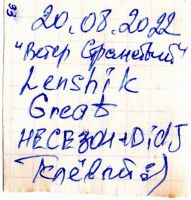 20.08.2022
"Ветер Странствий"
Lenshik
Great
НЕСЕЗОН+DidJ
Клёвый :)